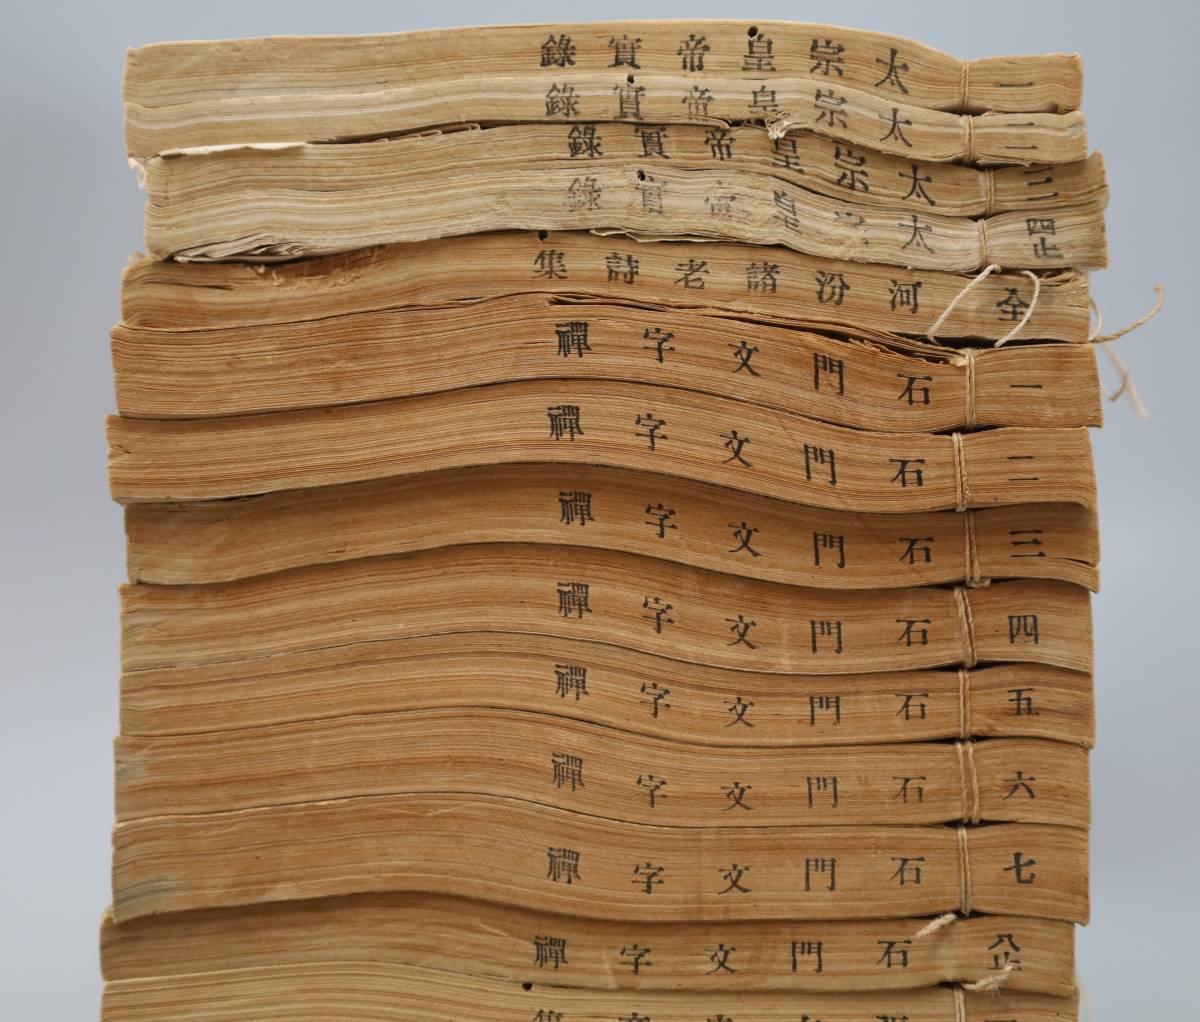 一 太宗皇帝實錄
二 太宗皇帝實錄
三 太宗皇帝實錄
四止 太宗皇帝實錄
全 河汾諸老詩集
一 石門文字禪
二 石門文字禪
三 石門文字禪
四 石門文字禪
五 石門文字禪
六 石門文字禪
七 石門文字禪
八止 石門文字禪